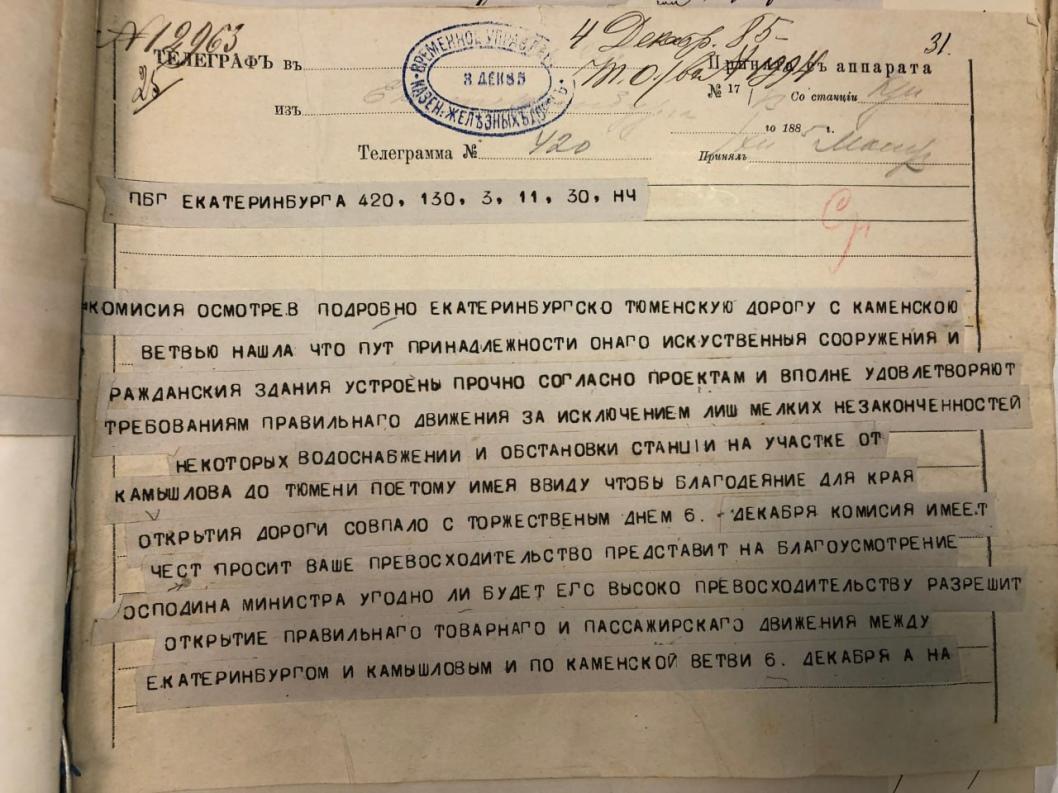 № 12963
4 Декабр. 85
31.
25
ТЕЛЕГРАФЪ въ
ВРЕМЕННОЕ УПРАВЛЕНІЕ
КАЗЕН. ЖЕЛѢЗНЫХЪ ДОРОГЪ
3 ДЕК 85
Принята съ аппарата
№ 17
Со станціи
изъ
го 1885 г.
Телеграмма № 420
Принялъ
ПБГ ЕКАТЕРИНБУРГА 420, 130, 3, 11, 30, НЧ
Ср
КОМИСИЯ ОСМОТРЕВ ПОДРОБНО ЕКАТЕРИНБУРГСКО ТЮМЕНСКУЮ ДОРОГУ С КАМЕНСКОЮ
ВЕТВЬЮ НАШЛА ЧТО ПУТ ПРИНАДЛЕЖНОСТИ ОНАГО ИСКУСТВЕННЫЯ СООРУЖЕНИЯ И
РАЖДАНСКИЯ ЗДАНИЯ УСТРОЕНЫ ПРОЧНО СОГЛАСНО ПРОЕКТАМ И ВПОЛНЕ УДОВЛЕТВОРЯЮТ
ТРЕБОВАНИЯМ ПРАВИЛЬНАГО ДВИЖЕНИЯ ЗА ИСКЛЮЧЕНИЕМ ЛИШ МЕЛКИХ НЕЗАКОНЧЕННОСТЕЙ
НЕКОТОРЫХ ВОДОСНАБЖЕНИИ И ОБСТАНОВКИ СТАНЦІИ НА УЧАСТКЕ ОТ
КАМЫШЛОВА ДО ТЮМЕНИ ПОЕТОМУ ИМЕЯ ВВИДУ ЧТОБЫ БЛАГОДЕЯНИЕ ДЛЯ КРАЯ
ОТКРЫТИЯ ДОРОГИ СОВПАЛО С ТОРЖЕСТВЕНЫМ ДНЕМ 6. ДЕКАБРЯ КОМИСИЯ ИМЕЕТ
ЧЕСТ ПРОСИТ ВАШЕ ПРЕВОСХОДИТЕЛЬСТВО ПРЕДСТАВИТ НА БЛАГОУСМОТРЕНИЕ
ОСПОДИНА МИНИСТРА УГОДНО ЛИ БУДЕТ ЕГО ВЫСОКО ПРЕВОСХОДИТЕЛЬСТВУ РАЗРЕШИТ
ОТКРЫТИЕ ПРАВИЛЬНАГО ТОВАРНАГО И ПАССАЖИРСКАГО ДВИЖЕНИЯ МЕЖДУ
ЕКАТЕРИНБУРГОМ И КАМЫШЛОВЫМ И ПО КАМЕНСКОЙ ВЕТВИ 6. ДЕКАБРЯ А НА